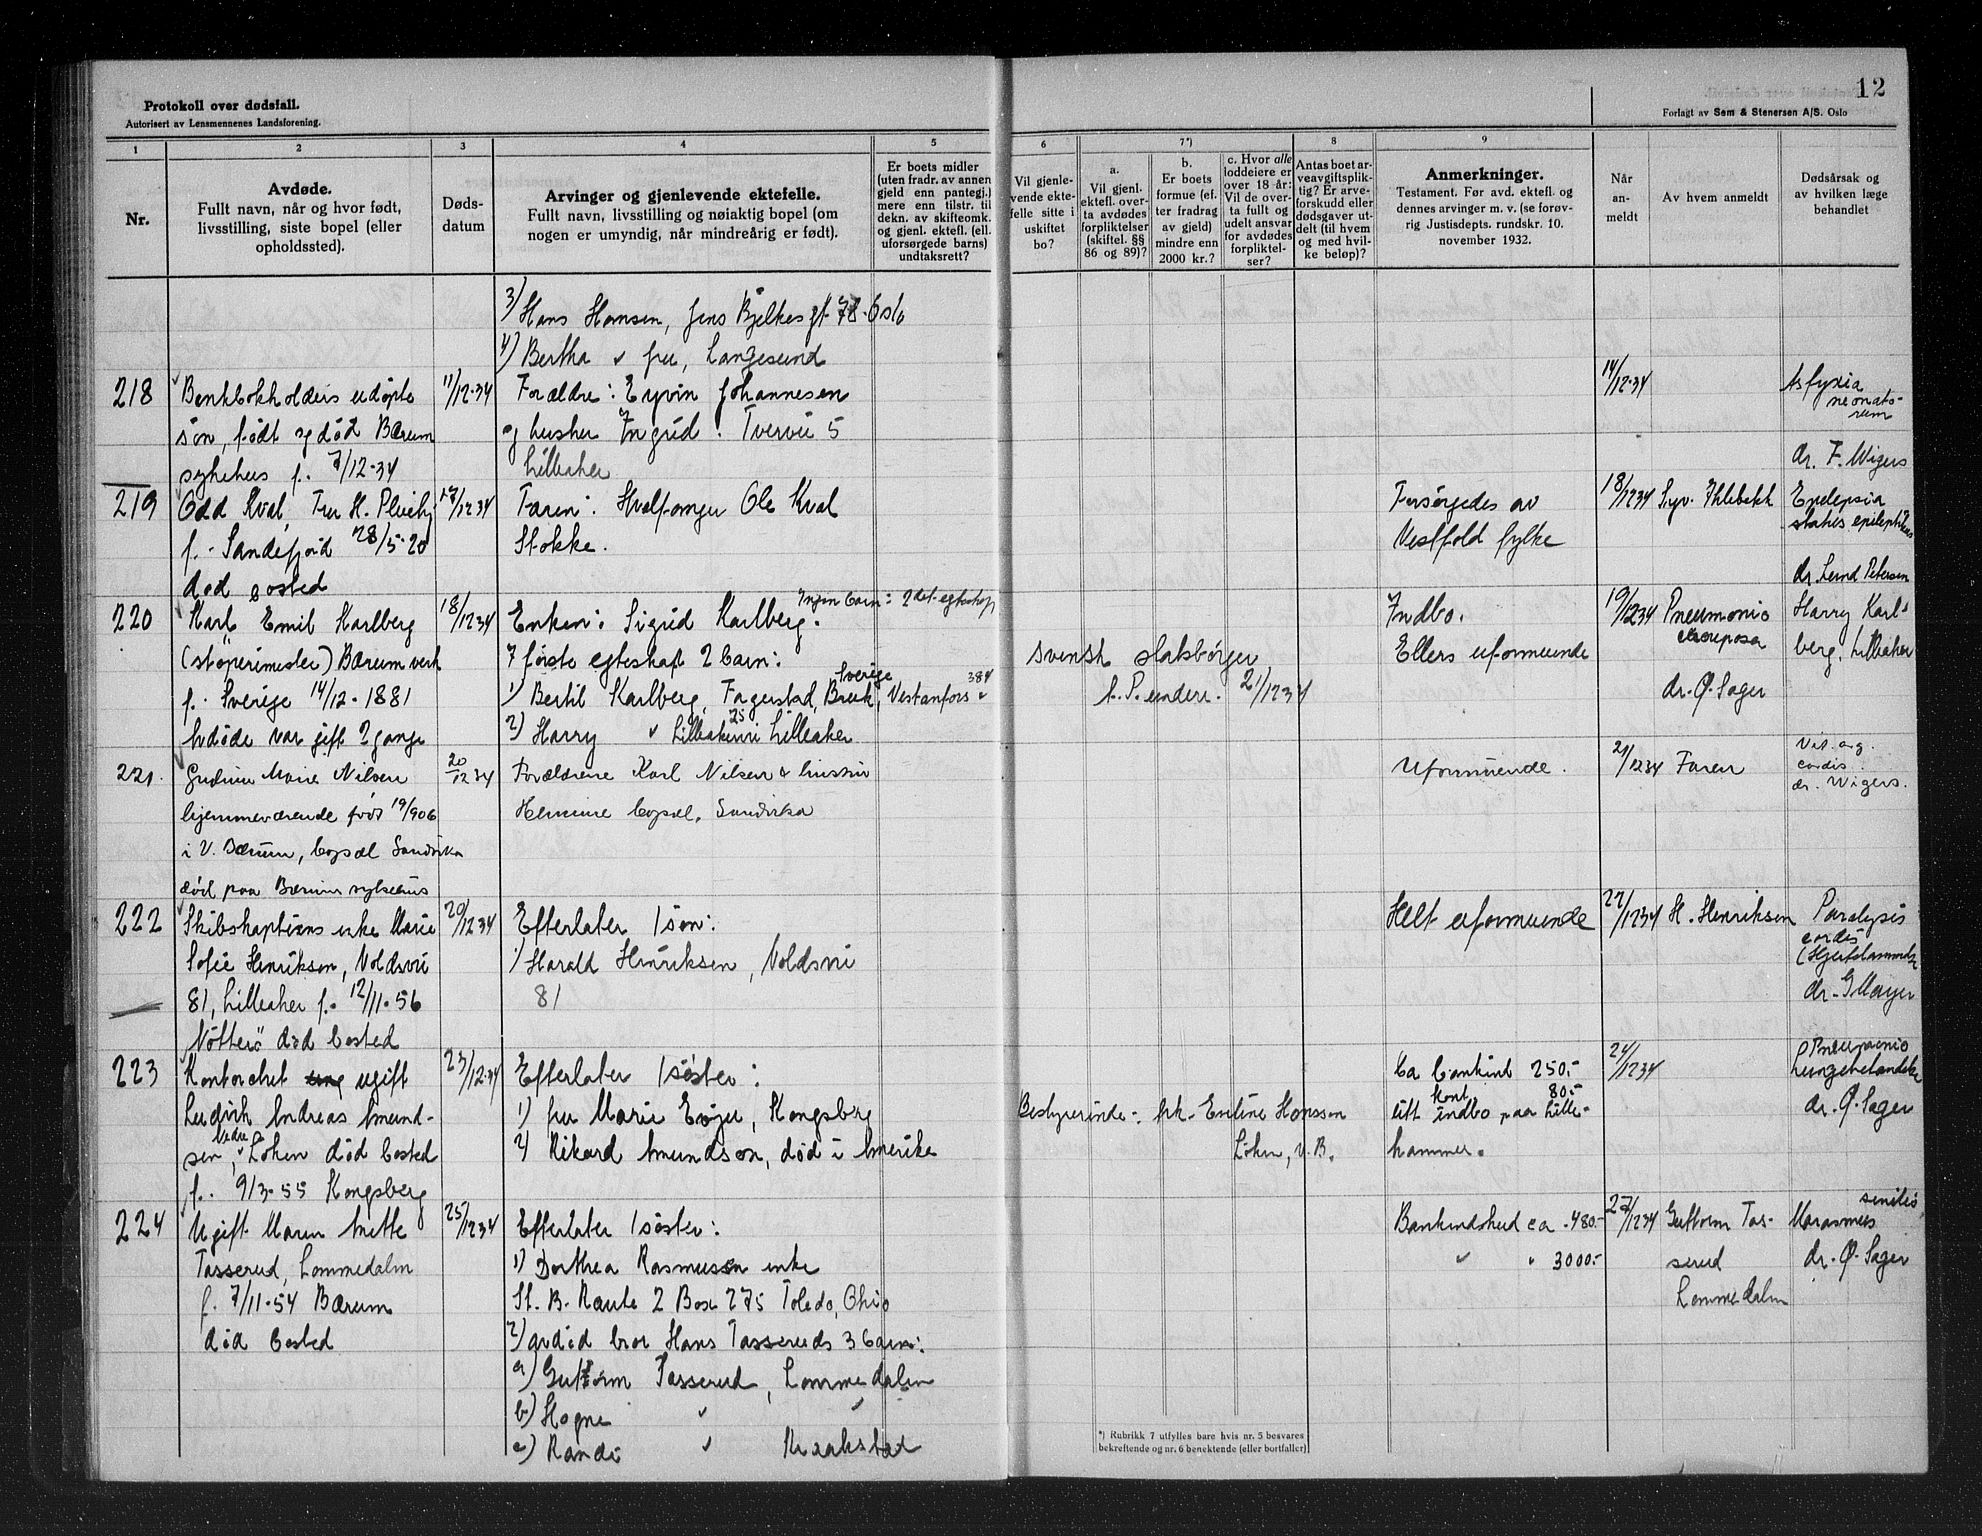 12
Protokoll over dødsfall.
Autorisert av Lensmennenes Landsforening.
Forlagt av Sem & Stenersen A/S. Oslo
1
2
3
4
5
6
7*)
8
9
Nr.
Avdøde.
Fullt navn, når og hvor født,
livsstilling, siste bopel (eller
opholdssted).
Døds-
datum
Arvinger og gjenlevende ektefelle.
Fullt navn, livsstilling og nøiaktig bopel (om
nogen er umyndig, når mindreårig er født).
Er boets midler
(uten fradr. av annen
gjeld enn pantegj.)
mere enn tilstr. til
dekn. av skifteomk.
og gjenl. ektefl. (ell.
uforsørgede barns)
undtaksrett?
Vil gjenle-
vende ekte-
felle sitte i
uskiftet
bo?
a.
Vil gjenl.
ektefl. over-
ta avdødes
forpliktelser
(skiftel. §§
86 og 89)?
b.
Er boets
formue (ef-
ter fradrag
av gjeld)
mindre enn
2000 kr.?
c. Hvor alle
loddeiere er
over 18 år:
Vil de over-
ta fullt og
udelt ansvar
for avdødes
forpliktel-
ser?
Antas boet ar-
veavgiftsplik-
tig? Er arve-
forskudd eller
dødsgaver ut-
delt (til hvem
og med hvil-
ke beløp)?
Anmerkninger.
Testament. Før avd. ektefl. og
dennes arvinger m. v. (se forøv-
rig Justisdepts. rundskr. 10.
november 1932.
Når
an-
meldt
Av hvem anmeldt
Dødsårsak og
av hvilken læge
behandlet
3) Hans Hansen, Jens Bjelkes gt 78. Oslo
4) Bertha " fru, Langesund
218
Bankbokholders udøpte
søn, født og død Bærum
sykehus f. 7/12-34
11/12-34
Forældre: Eyvin Johannesen
og hustru Ingrid. Tvervei 5
Lilleaker
14/12-34
Asfyxia
neonato-
rum
dr. F. Wigers
219
Odd Kval, Fru H. Pleiehj
f. Sandefjord 28/5-20
død bosted
17/12 34
Faren: Hvalfanger Ole Kval
Stokke.
Forsørgedes av
Vestfold fylke
18/12 34
Epilepsia
status epilepticus
dr. Lund Petersen
220
Karl Emil Karlberg
(støperimester) Bærum verk
f. Sverige 14/12-1881
Avdøde var gift 2 gange
18/12 34
Enken: Sigrid Karlberg. Ingen barn i 2det egteskap
I første egteskap 2 barn:
1) Bertil Karlberg, Fagerstad, Bruk, Vestanfors Sverige
2) Harry " Lilleakervei 25 Lilleaker
svensk statsborger
21/12 34
Indbo.
Ellers uformuende
19/12 34
Pneumonia
crouposa
dr. Ø. Sager
Harry Karl-
berg, Lilleaker
221.
Gudrun Marie Nilsen
hjemmeværende født 19/906
i V. Bærum, bopæl Sandvika
død paa Bærum sykehus
20/12 34
Forældrene Karl Nilsen & hustru
Hermine bopæl. Sandvika
Uformuende.
21/12 34
Faren
Vit. org.
cordis.
dr. Wigers.
222
Skibskapteins enke Marie
Sofie Henriksen, Voldsvei
81, Lilleaker f. 12/11-56
Nøtterö død bosted
20/12 34
Efterlater 1 søn:
1) Harald Henriksen, Voldsvei
81
Helt uformuende
22/12 34
H. Henriksen
Paralysis
cordis
(Hjertelammelse
dr. G Mayer
223
Kontorchef ugift
Ludvik Andreas Amund-
sen, Nedre Løken død bosted
f. 9/3-55 Kongsberg
23/12-34
Efterlater 1 søster:
1) fru Marie Evju, Kongsberg
2) Rikard Amundson, død i Amerika
Bestyrerinde: frk. Entine Hansson
Løken, V. B.
Ca bankind 250.-
kont 80.-
litt indbo paa Lille-
hammer.
24/12 34
Pneumonia
Lungebetændelse
dr. Ø. Sager
224
Ugift Maren Mette
Tasserud, Lommedalen
f. 7/11-54 Bærum
død bosted
25/12 34
Efterlater 1 søster:
1) Dorthea Rasmussen enke
St. B. Route 2 Box 275 Toledo, Ohio
2) avdød bror Hans Tasseruds 3 barn:
a) Guttorm Tasserud, Lommedalen
b) Hogne " "
c) Randi " Kraakstad
Bankindskud ca. 480.-
" " 3000.-
27/12 34
Guttorm Tas-
serud
Lommedalen
Marasmus senilis
dr. Ø. Sager
*) Rubrikk 7 utfylles bare hvis nr. 5 besvares
bekreftende og nr. 6 benektende (eller bortfaller)